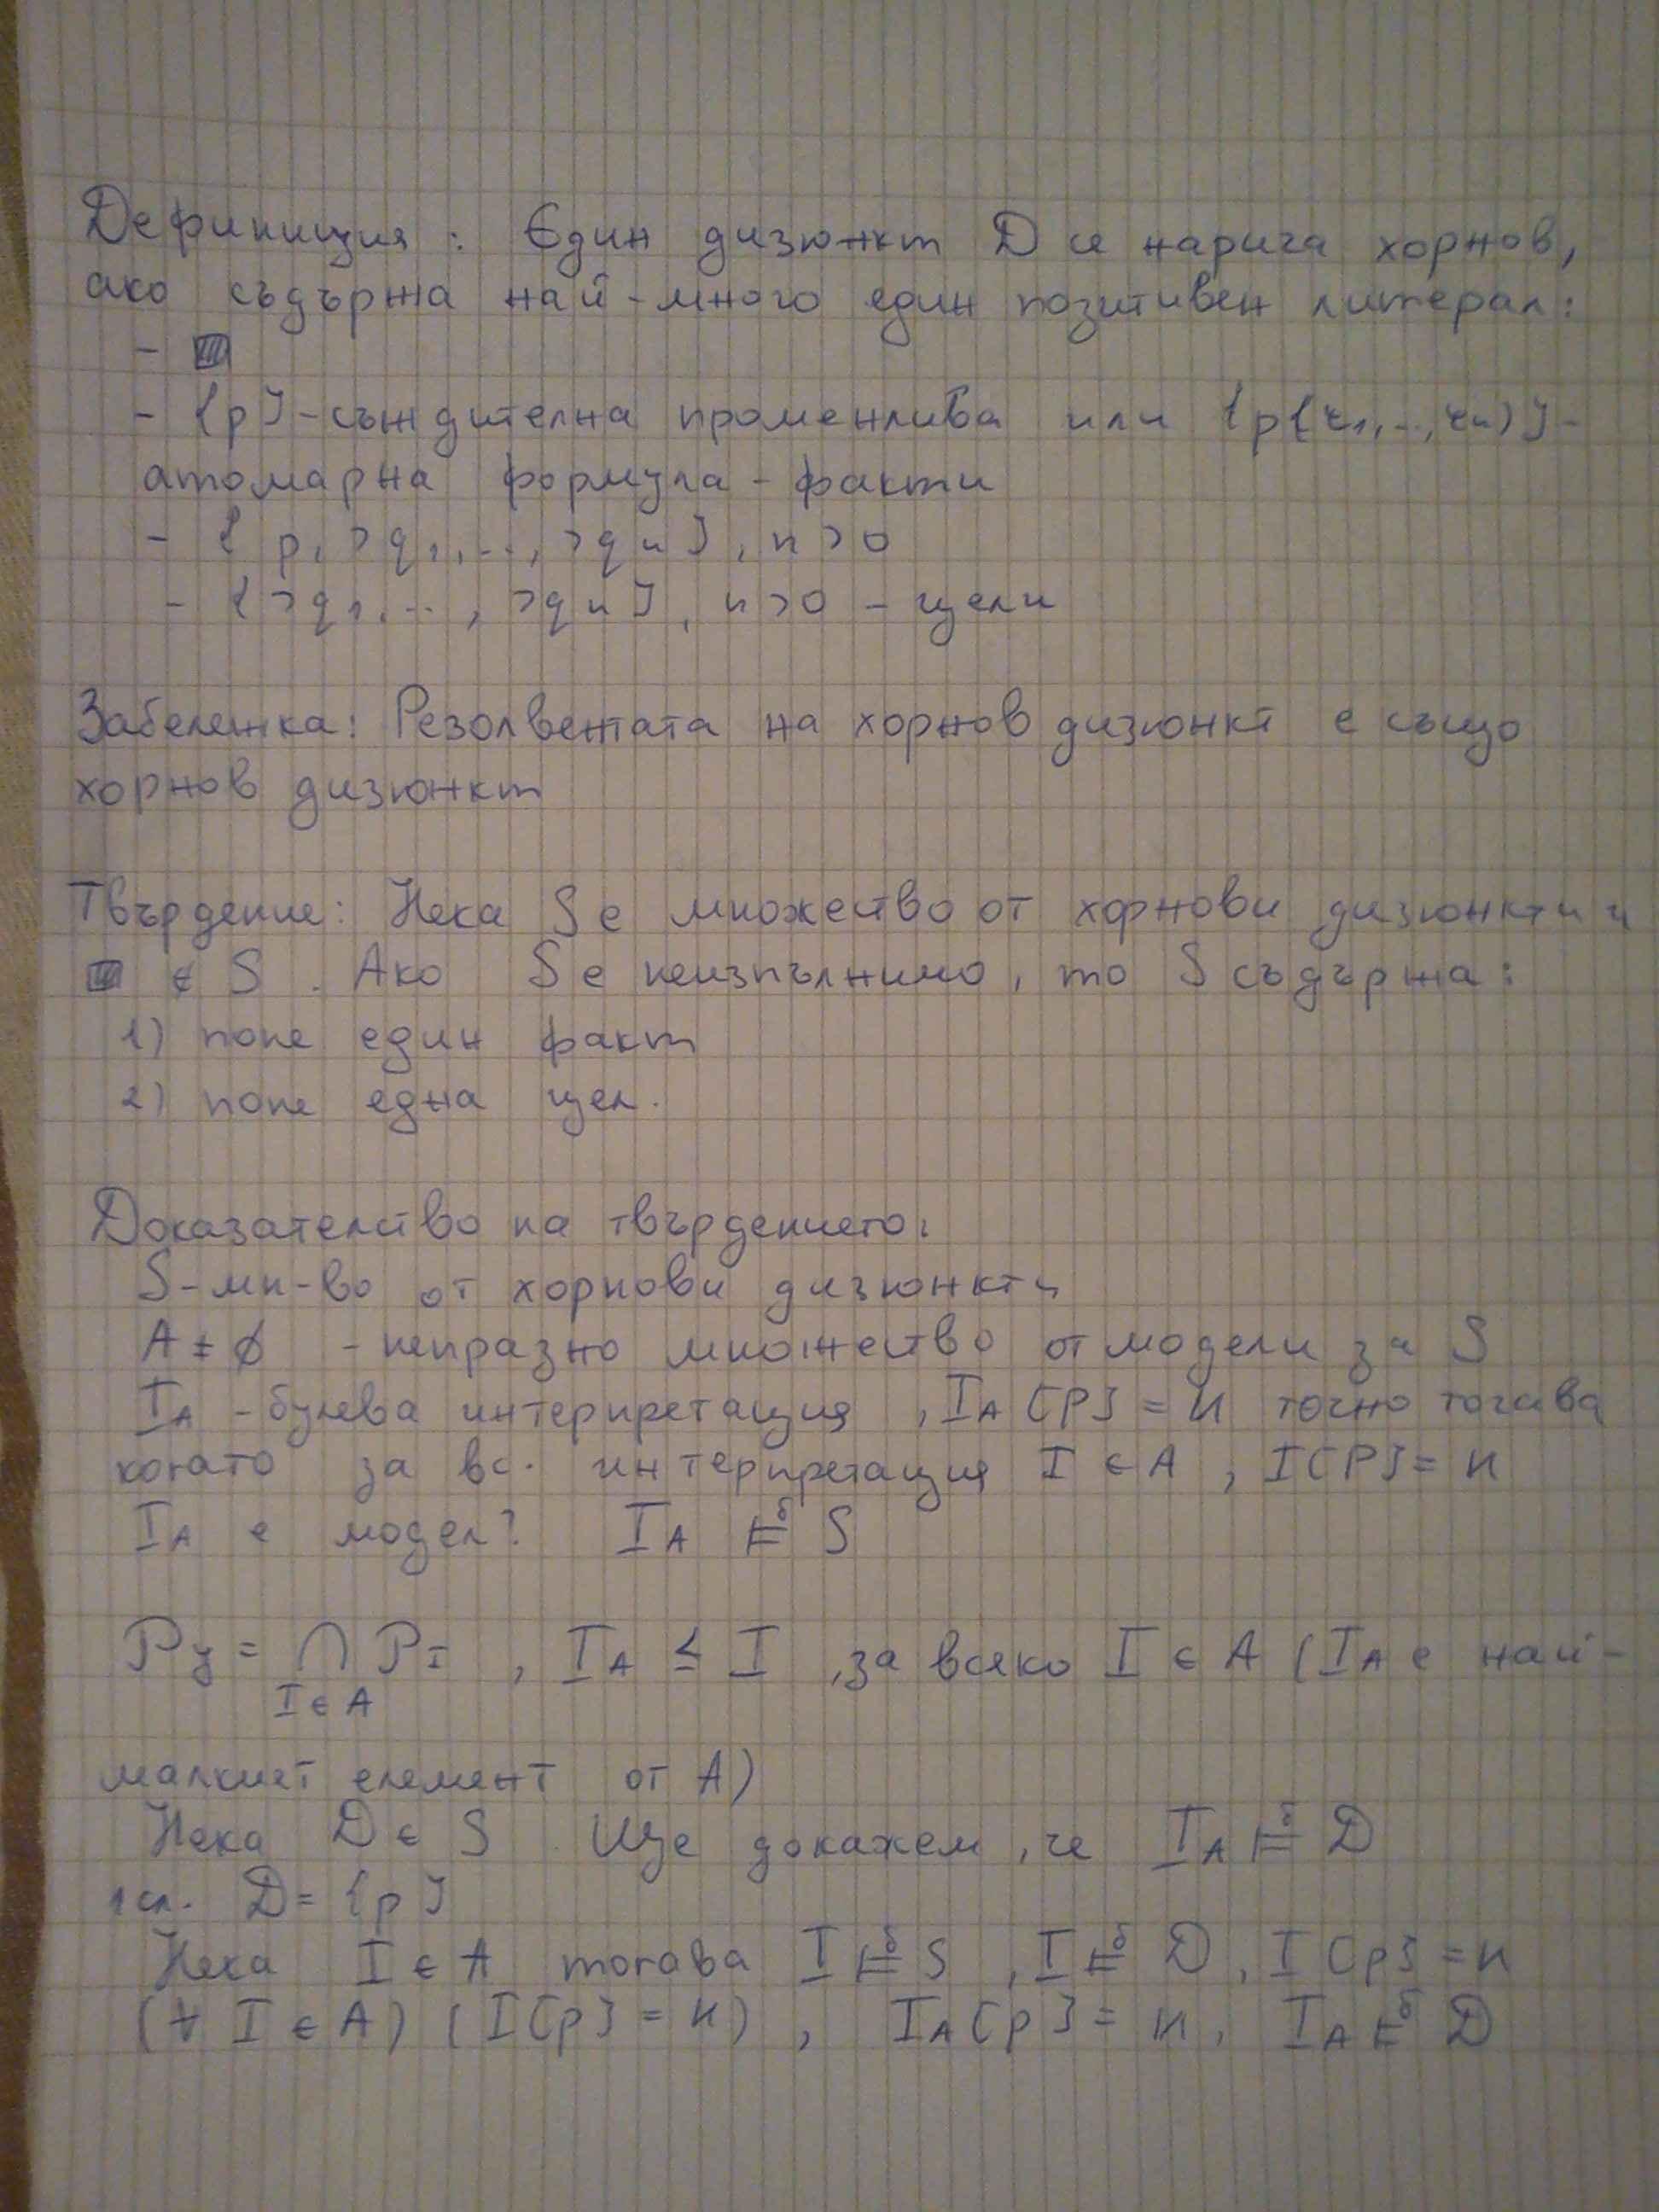 Дефиниция: Един дизюнкт D се нарича хорнов,
ако съдържа най-много един позитивен литерал:
- ■
- {p} - съждителна променлива или {p(τ1,..,τn)} -
атомарна формула - факти
- { p, ¬q1,..., ¬qn}, n>0
- {¬q1,..., ¬qn}, n>0 - цели
Забележка: Резолвентата на хорнов дизюнкт е също
хорнов дизюнкт
Твърдение: Нека S е множество от хорнови дизюнкти и
■ ∉ S. Ако S е неизпълнимо, то S съдържа:
1) поне един факт
2) поне една цел.
Доказателство на твърдението:
S - мн-во от хорнови дизюнкти
A ≠ ∅ - непразно множество от модели за S
I_A - булева интерпретация, I_A[P] = И точно тогава
когато за вс. интерпретация I ∈ A, I[P] = И
I_A е модел? I_A ⊨ᵇ S
P_y = ∩ P_I, I_A ≤ I, за всяко I ∈ A (I_A е най-
I ∈ A
малкият елемент от A)
Нека D ∈ S. Ще докажем, че I_A ⊨ᵇ D
1сл. D = {p}
Нека I ∈ A тогава I ⊨ᵇ S, I ⊨ᵇ D, I[p] = И
(∀ I ∈ A) (I[p] = И), I_A[p] = И, I_A ⊨ᵇ D